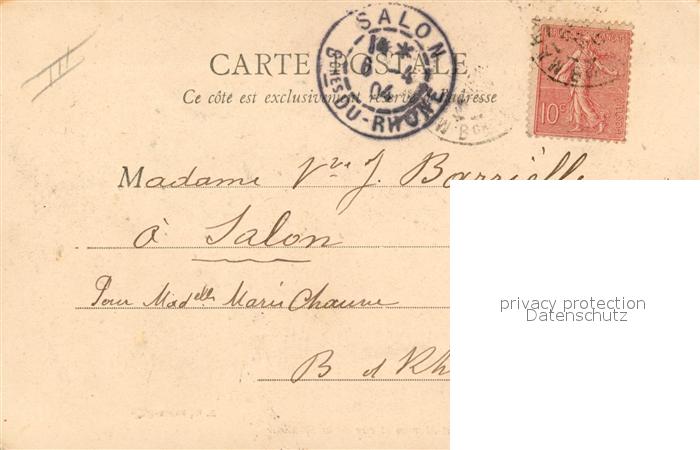 III
CARTE POSTALE
Ce côté est exclusivement réservé à l'adresse
SALON
14 *
6 -4
04
BCHES DU-RHONE
10c
Madame Vve J. Barrielle
à Salon
Pour Madelle Marie Chauve
B d Rh
privacy protection
Datenschutz